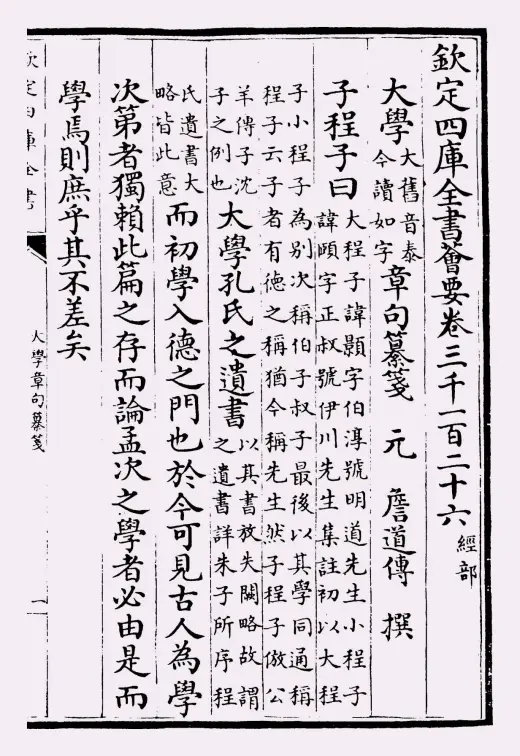 欽定四庫全書薈要卷三千一百二十六 經部
大學大舊音泰今讀如字章句纂箋 元 詹道傳 撰
子程子曰大程子諱顥字伯淳號明道先生小程子諱頤字正叔號伊川先生集註初以大程
子小程子為別次稱伯子叔子最後以其學同通稱程子云子者有德之稱猶今稱先生然子程子倣公
羊傳子沈子之例也大學孔氏之遺書以其書放失闕略故謂之遺書詳朱子所序程
氏遺書大略皆此意而初學入德之門也於今可見古人為學
次第者獨賴此篇之存而論孟次之學者必由是而
學焉則庶乎其不差矣
欽定四庫全書
大學章句纂箋
一